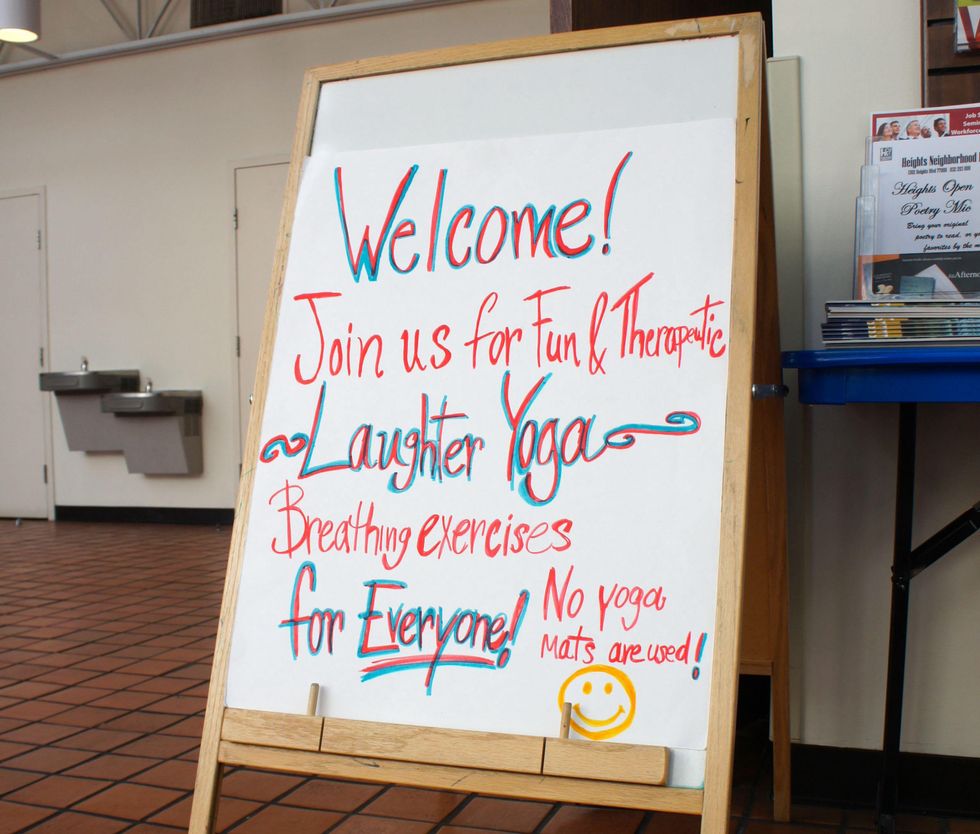 Welcome!
Join us for Fun & Therapeutic
~Laughter Yoga~
Breathing exercises
for Everyone!
No yoga
mats are used!
Job S
Semi
Workforc
Heights Neighborhood
Heights Open
Poetry Mic
Bring your original
poetry to read, or y
favorites by the m
Afterno